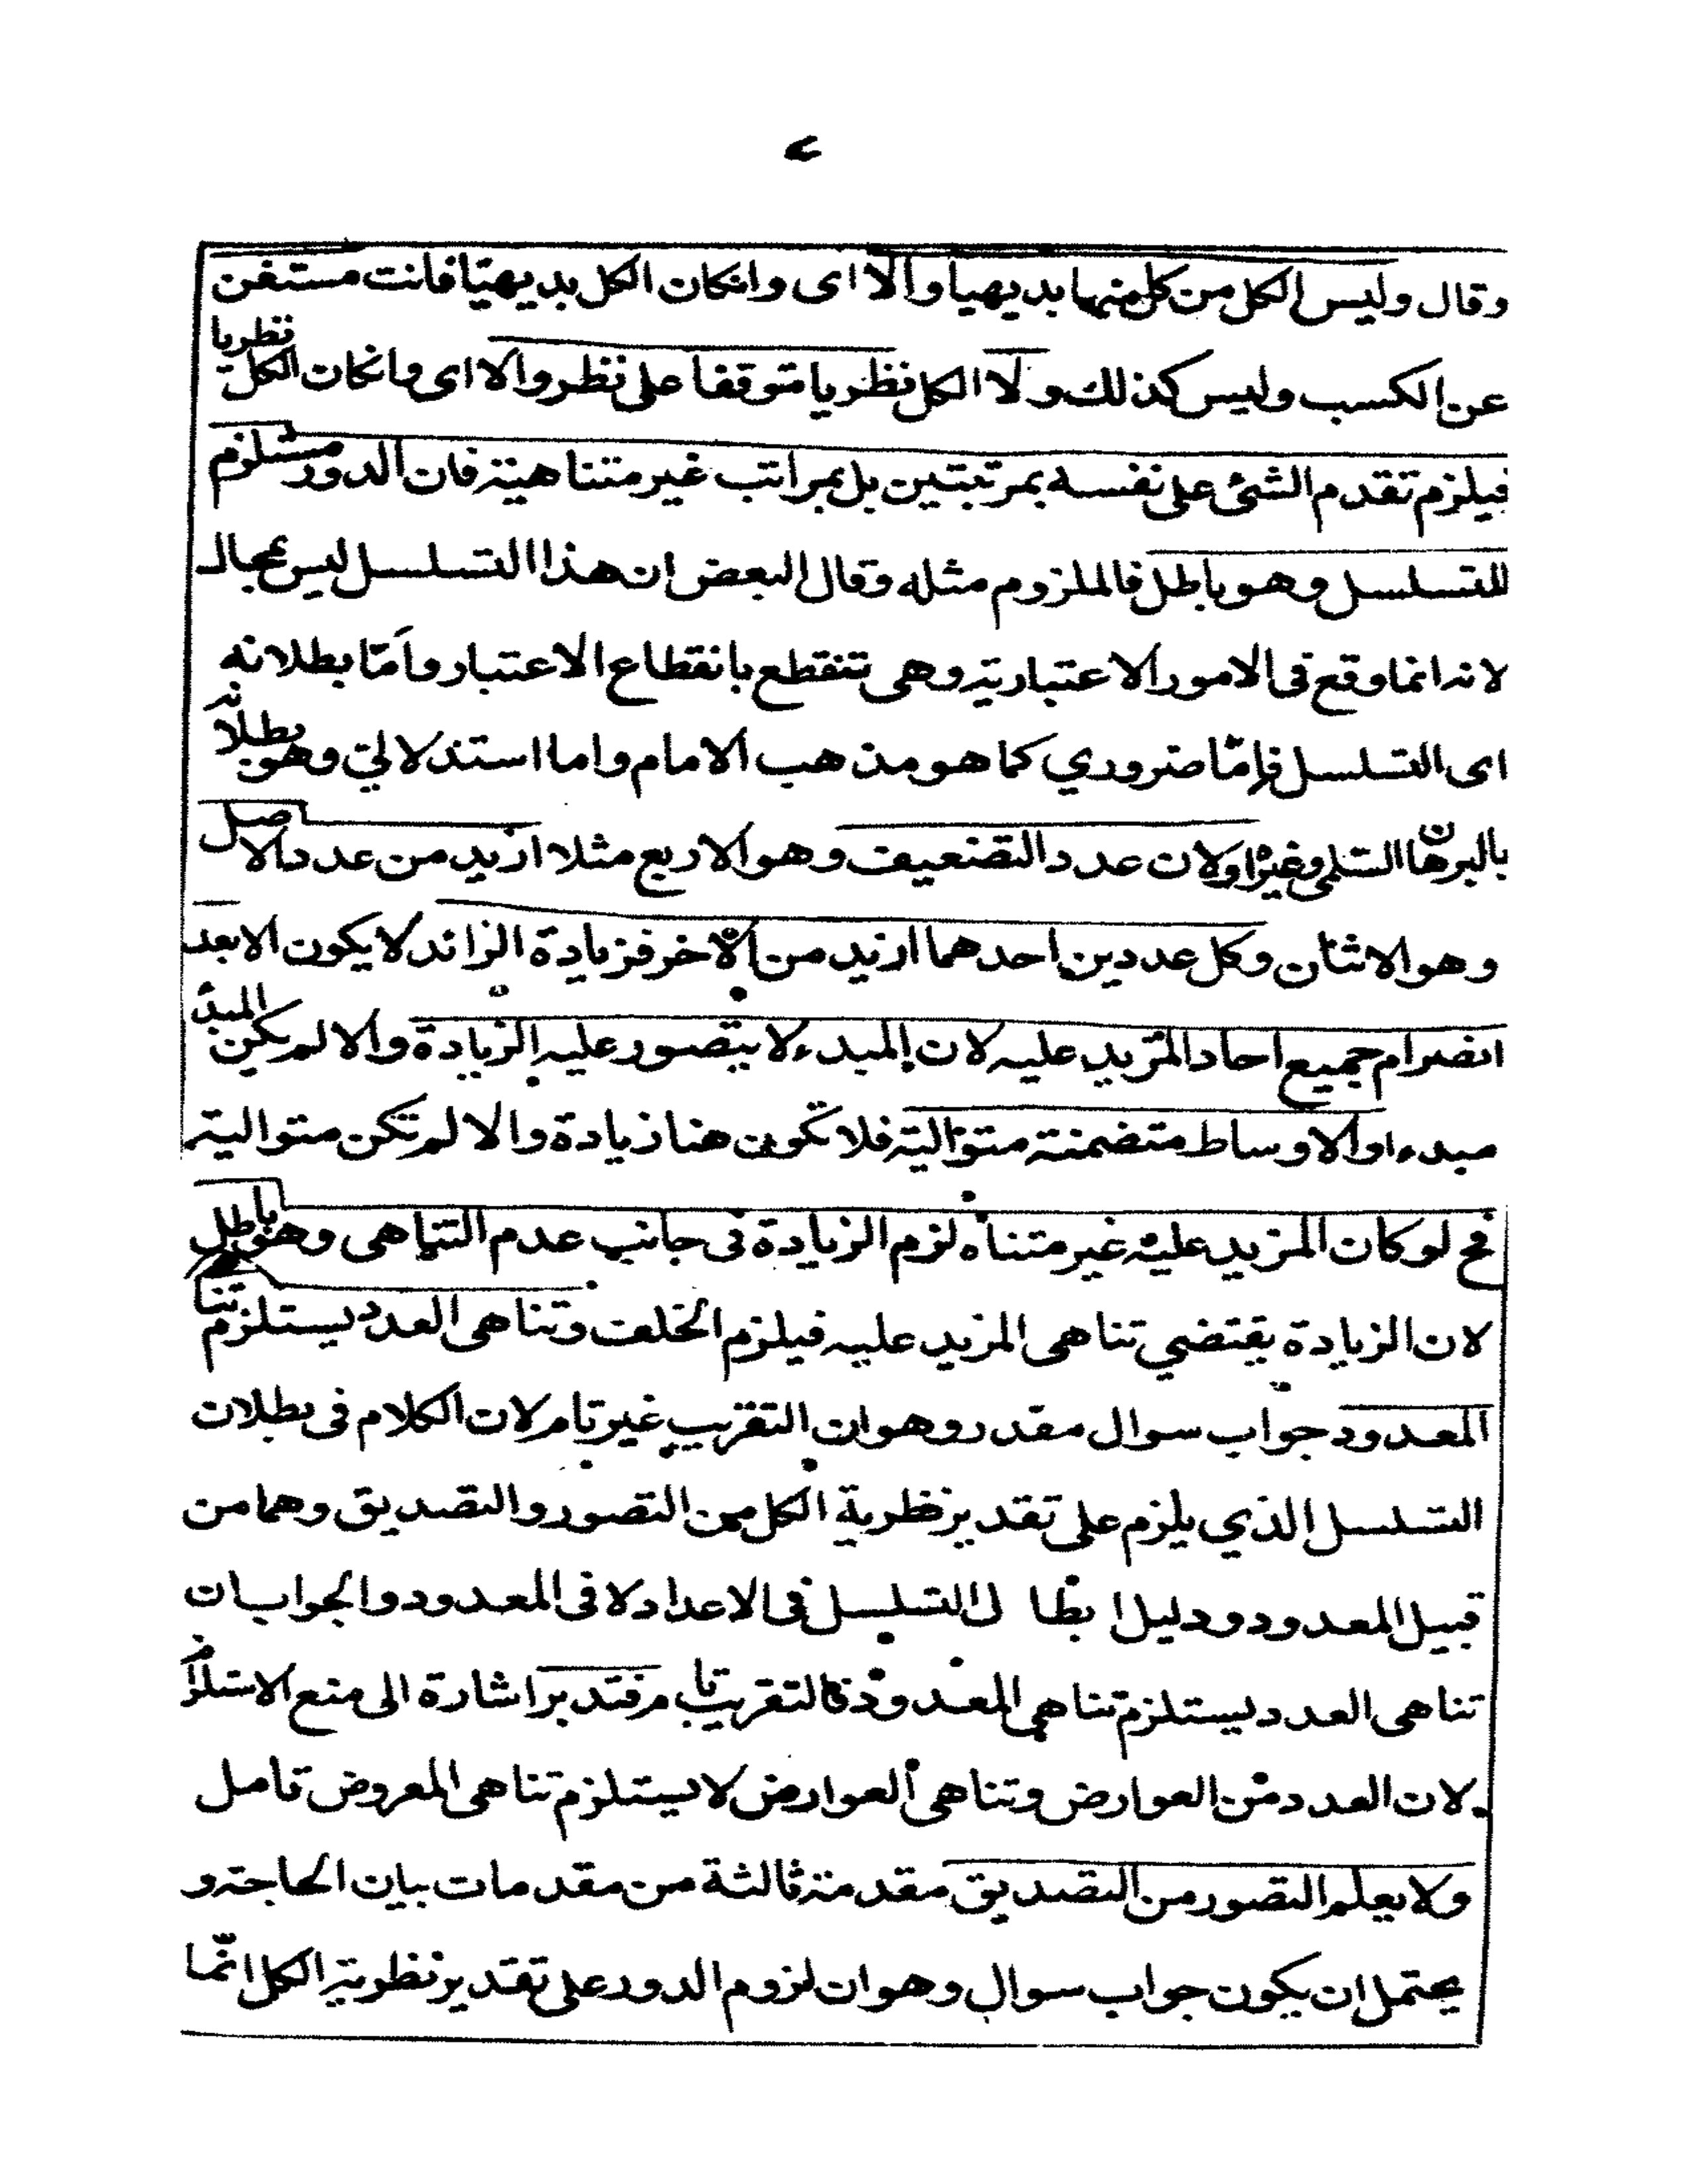 وقال وليس الكل من كل منهما بديهيا والا اى وانكان الكل بديهيّا فانت مستغن
عن الكسب وليس كذلك ولا الكل نظريا متوقفا على نظر والا اى وانكان الكل نظريا
فيلزم تقدم الشئ على نفسه بمرتبتين بل بمراتب غير متناهية فان الدور مستلزم
للتسلسل وهو باطل فالملزوم مثله وقال البعض ان هذا التسلسل ليس بمحال
لانه انما وقع فى الامور الاعتبارية وهى تنقطع بانقطاع الاعتبار وامّا بطلانه
اى التسلسل فإمّا ضروري كما هو مذهب الامام واما استدلالي وهو بطلانه
بالبرهان السلمى وغيره اولان عدد التضعيف وهو الاربع مثلا ازيد من عدد الاصل
وهو الاثنان وكل عددين احدهما ازيد من الاخر فزيادة الزائد لا يكون الا بعد
انصرام جميع احاد المزيد عليه لان المبدء لا يتصور عليه الزيادة والا لم يكن المبدأ
مبدءا والاوساط متضمنة متوالية فلا تكون هنا زيادة والا لم تكن متوالية
فح لو كان المزيد عليه غير متناه لزم الزيادة فى جانب عدم التناهى وهو باطل
لان الزيادة يقتضي تناهى المزيد عليه فيلزم الخلف وتناهى العدد يستلزم تنا
المعدود جواب سوال مقدر وهو ان التقريب غير تام لان الكلام فى بطلان
التسلسل الذي يلزم على تقدير نظرية الكل من التصور والتصديق وهما من
قبيل المعدود ودليل ابطا ل التسلسل فى الاعداد لا فى المعدود والجواب ان
تناهى العدد يستلزم تناهى المعدود فالتقريب تام فتدبر اشارة الى منع الاستلزام
لان العدد من العوارض وتناهى العوارض لا يستلزم تناهى المعروض تامل
ولا يعلم التصور من التصديق مقدمة ثالثة من مقدمات بيان الحاجة و
يحتمل ان يكون جواب سوال وهو ان لزوم الدور على تقدير نظرية الكل انّما